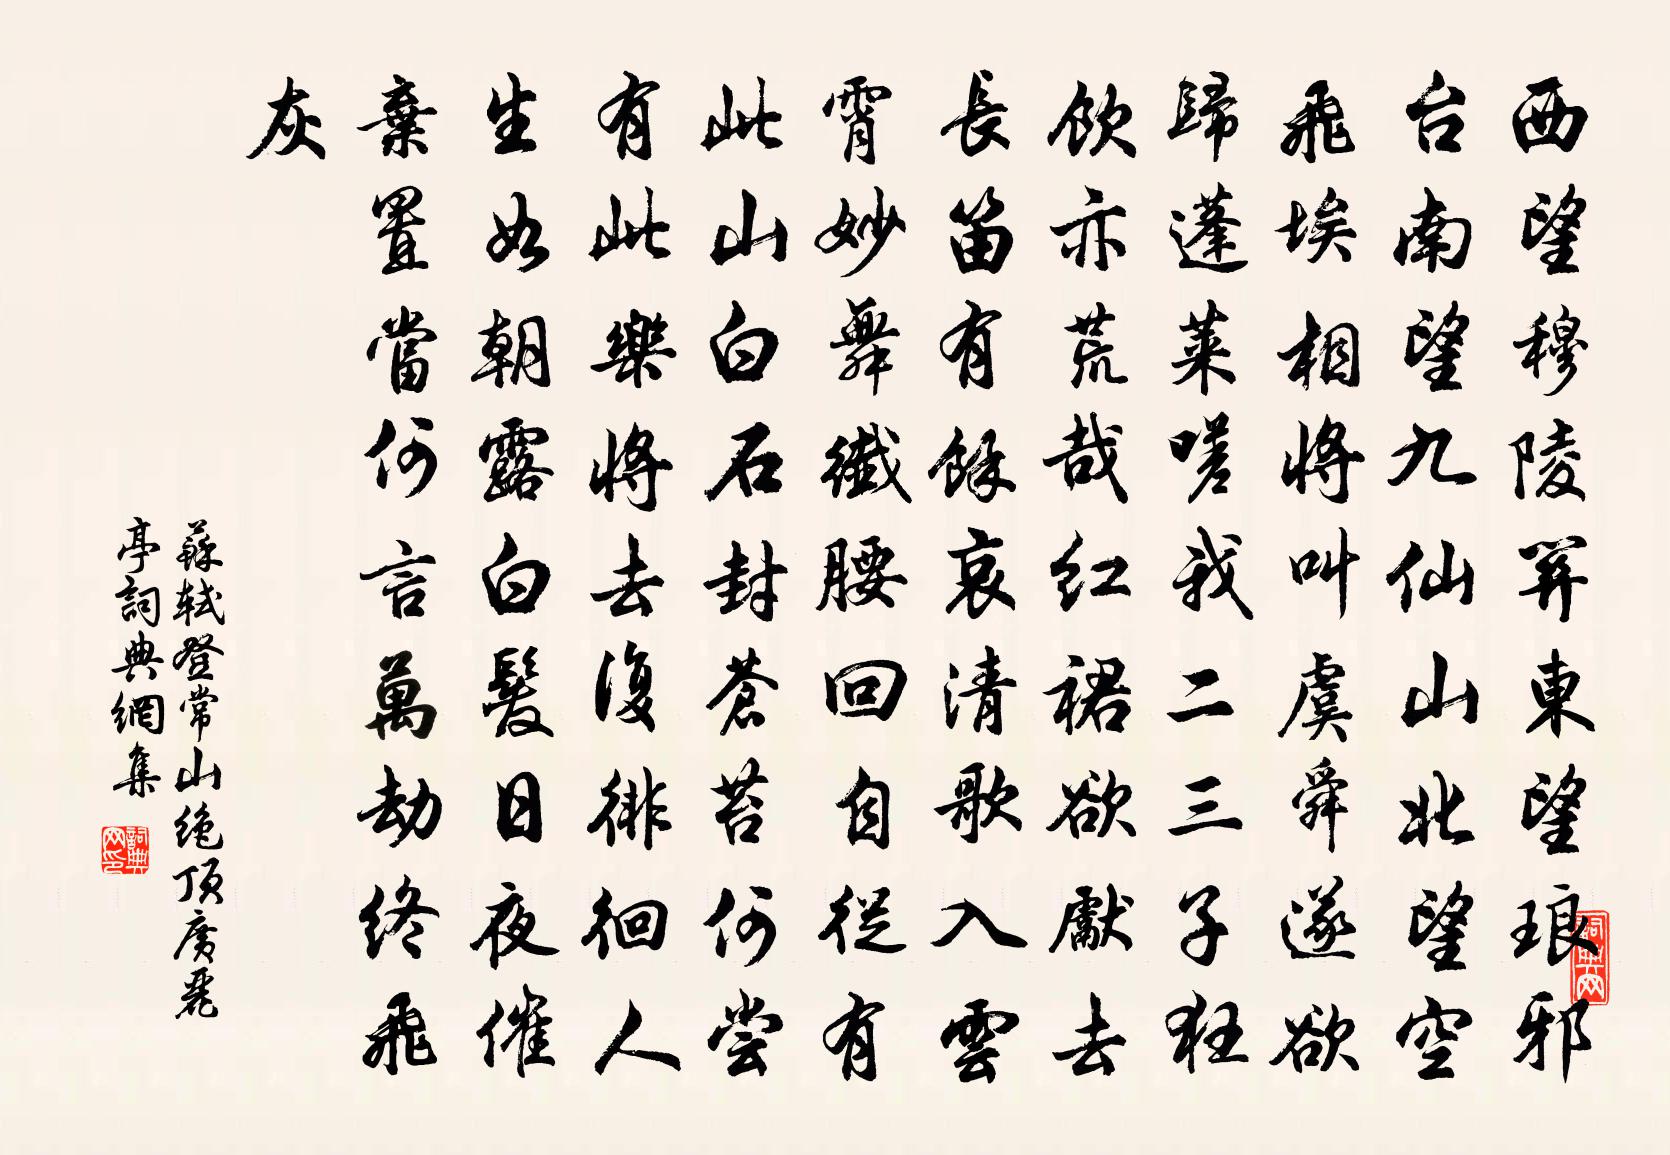 西望穆陵關東望琅邪
台南望九仙山北望空
飛埃相將叫虞舜遂欲
歸蓬萊嗟我二三子狂
飲亦荒哉红裙欲獻去
長笛有餘哀清歌入雲
霄妙舞纖腰回自從有
此山白石封蒼苔何嘗
有此樂將去復徘徊人
生如朝露白髮日夜催
棄置當何言萬劫終飛
灰
蘇軾登常山絶頂廣麗
亭詞典網集
詞典网
詞典网印